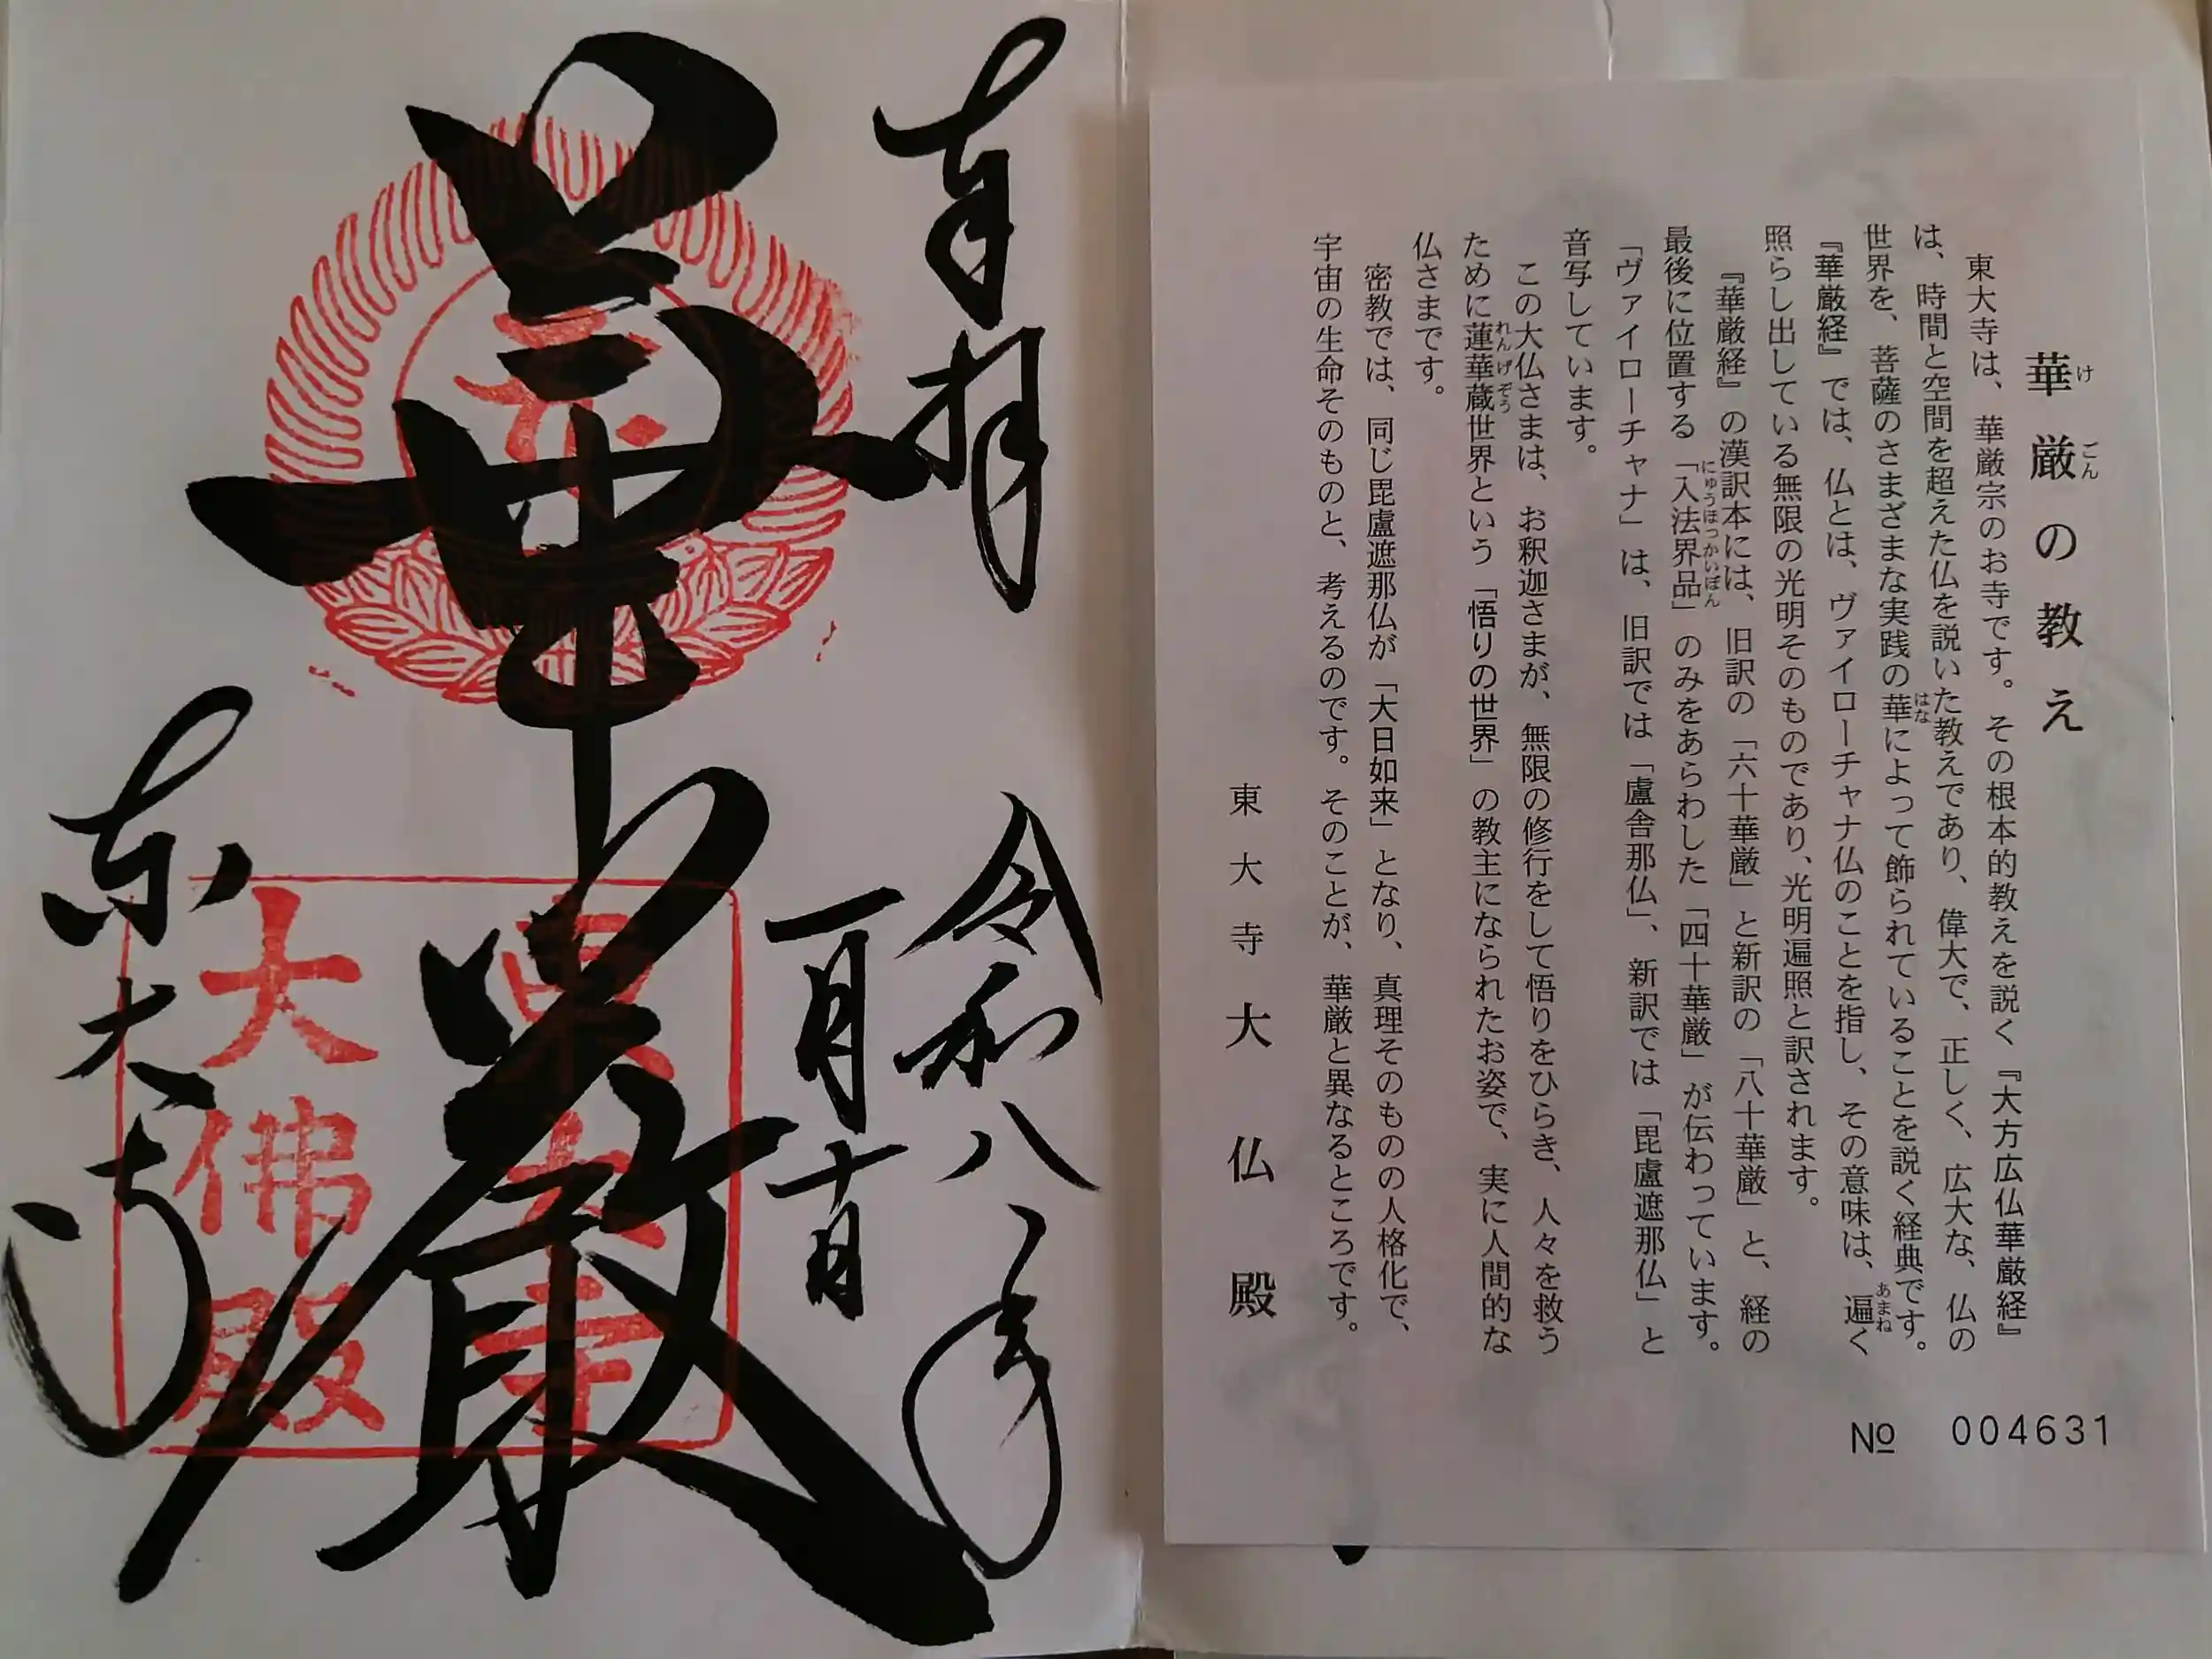 華厳の教え
東大寺は、華厳宗のお寺です。その根本的教えを説く『大方広仏華厳経』
は、時間と空間を超えた仏を説いた教えであり、偉大で、正しく、広大な、仏の
世界を、菩薩のさまざまな実践の華によって飾られていることを説く経典です。
『華厳経』では、仏とは、ヴァイローチャナ仏のことを指し、その意味は、遍く
照らし出している無限の光明そのものであり、光明遍照と訳されます。
『華厳経』の漢訳本には、旧訳の「六十華厳」と新訳の「八十華厳」と、経の
最後に位置する「入法界品」のみをあらわした「四十華厳」が伝わっています。
「ヴァイローチャナ」は、旧訳では「盧舎那仏」、新訳では「毘盧遮那仏」と
音写しています。
この大仏さまは、お釈迦さまが、無限の修行をして悟りをひらき、人々を救う
ために蓮華蔵世界という「悟りの世界」の教主になられたお姿で、実に人間的な
仏さまです。
密教では、同じ毘盧遮那仏が「大日如来」となり、真理そのものの人格化で、
宇宙の生命そのものと、考えるのです。そのことが、華厳と異なるところです。
東大寺大仏殿
№ 004631
奉拝
令和八年
一月十日
華厳
東大寺
大佛殿
東大寺